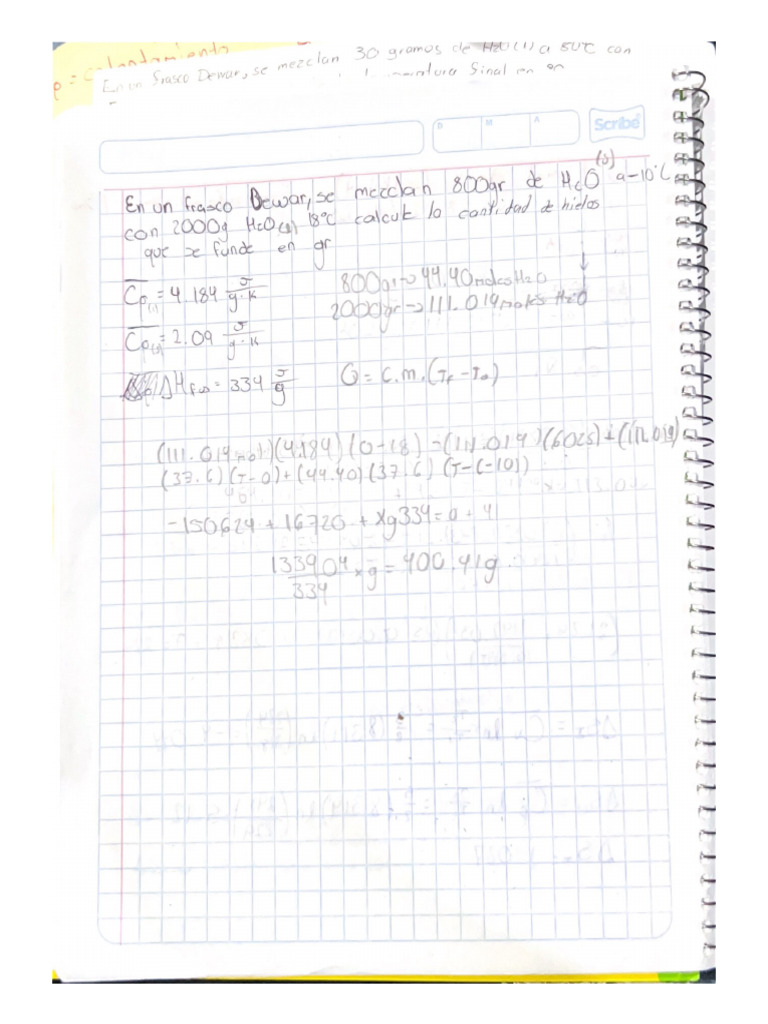 p = Calentamiento
En un frasco Dewar, se mezclan 30 gramos de H2O(l) a 50°C con
final en un
D M A
Scribe
En un frasco Dewar, se mezclan 800gr de H2O(s) a -10°C
con 2000g H2O(l) 18°C calcule la cantidad de hielos
que se funde en gr
Cp(l) = 4.184 J/g·K
800gr -> 44.40 moles H2O
2000gr -> 111.014 moles H2O
Cp(s) = 2.09 J/g·K
ΔHfus = 334 J/g
Q = C.m.(Tf - To)
(111.014 mol)(4.184)(0-18) = (111.014)(6025) + (111.019)
(37.6)(T-0) + (44.40)(37.6)(T-(-10))
-150624 + 16720 + Xg334 = 0
133904/334 × g = 400.41g